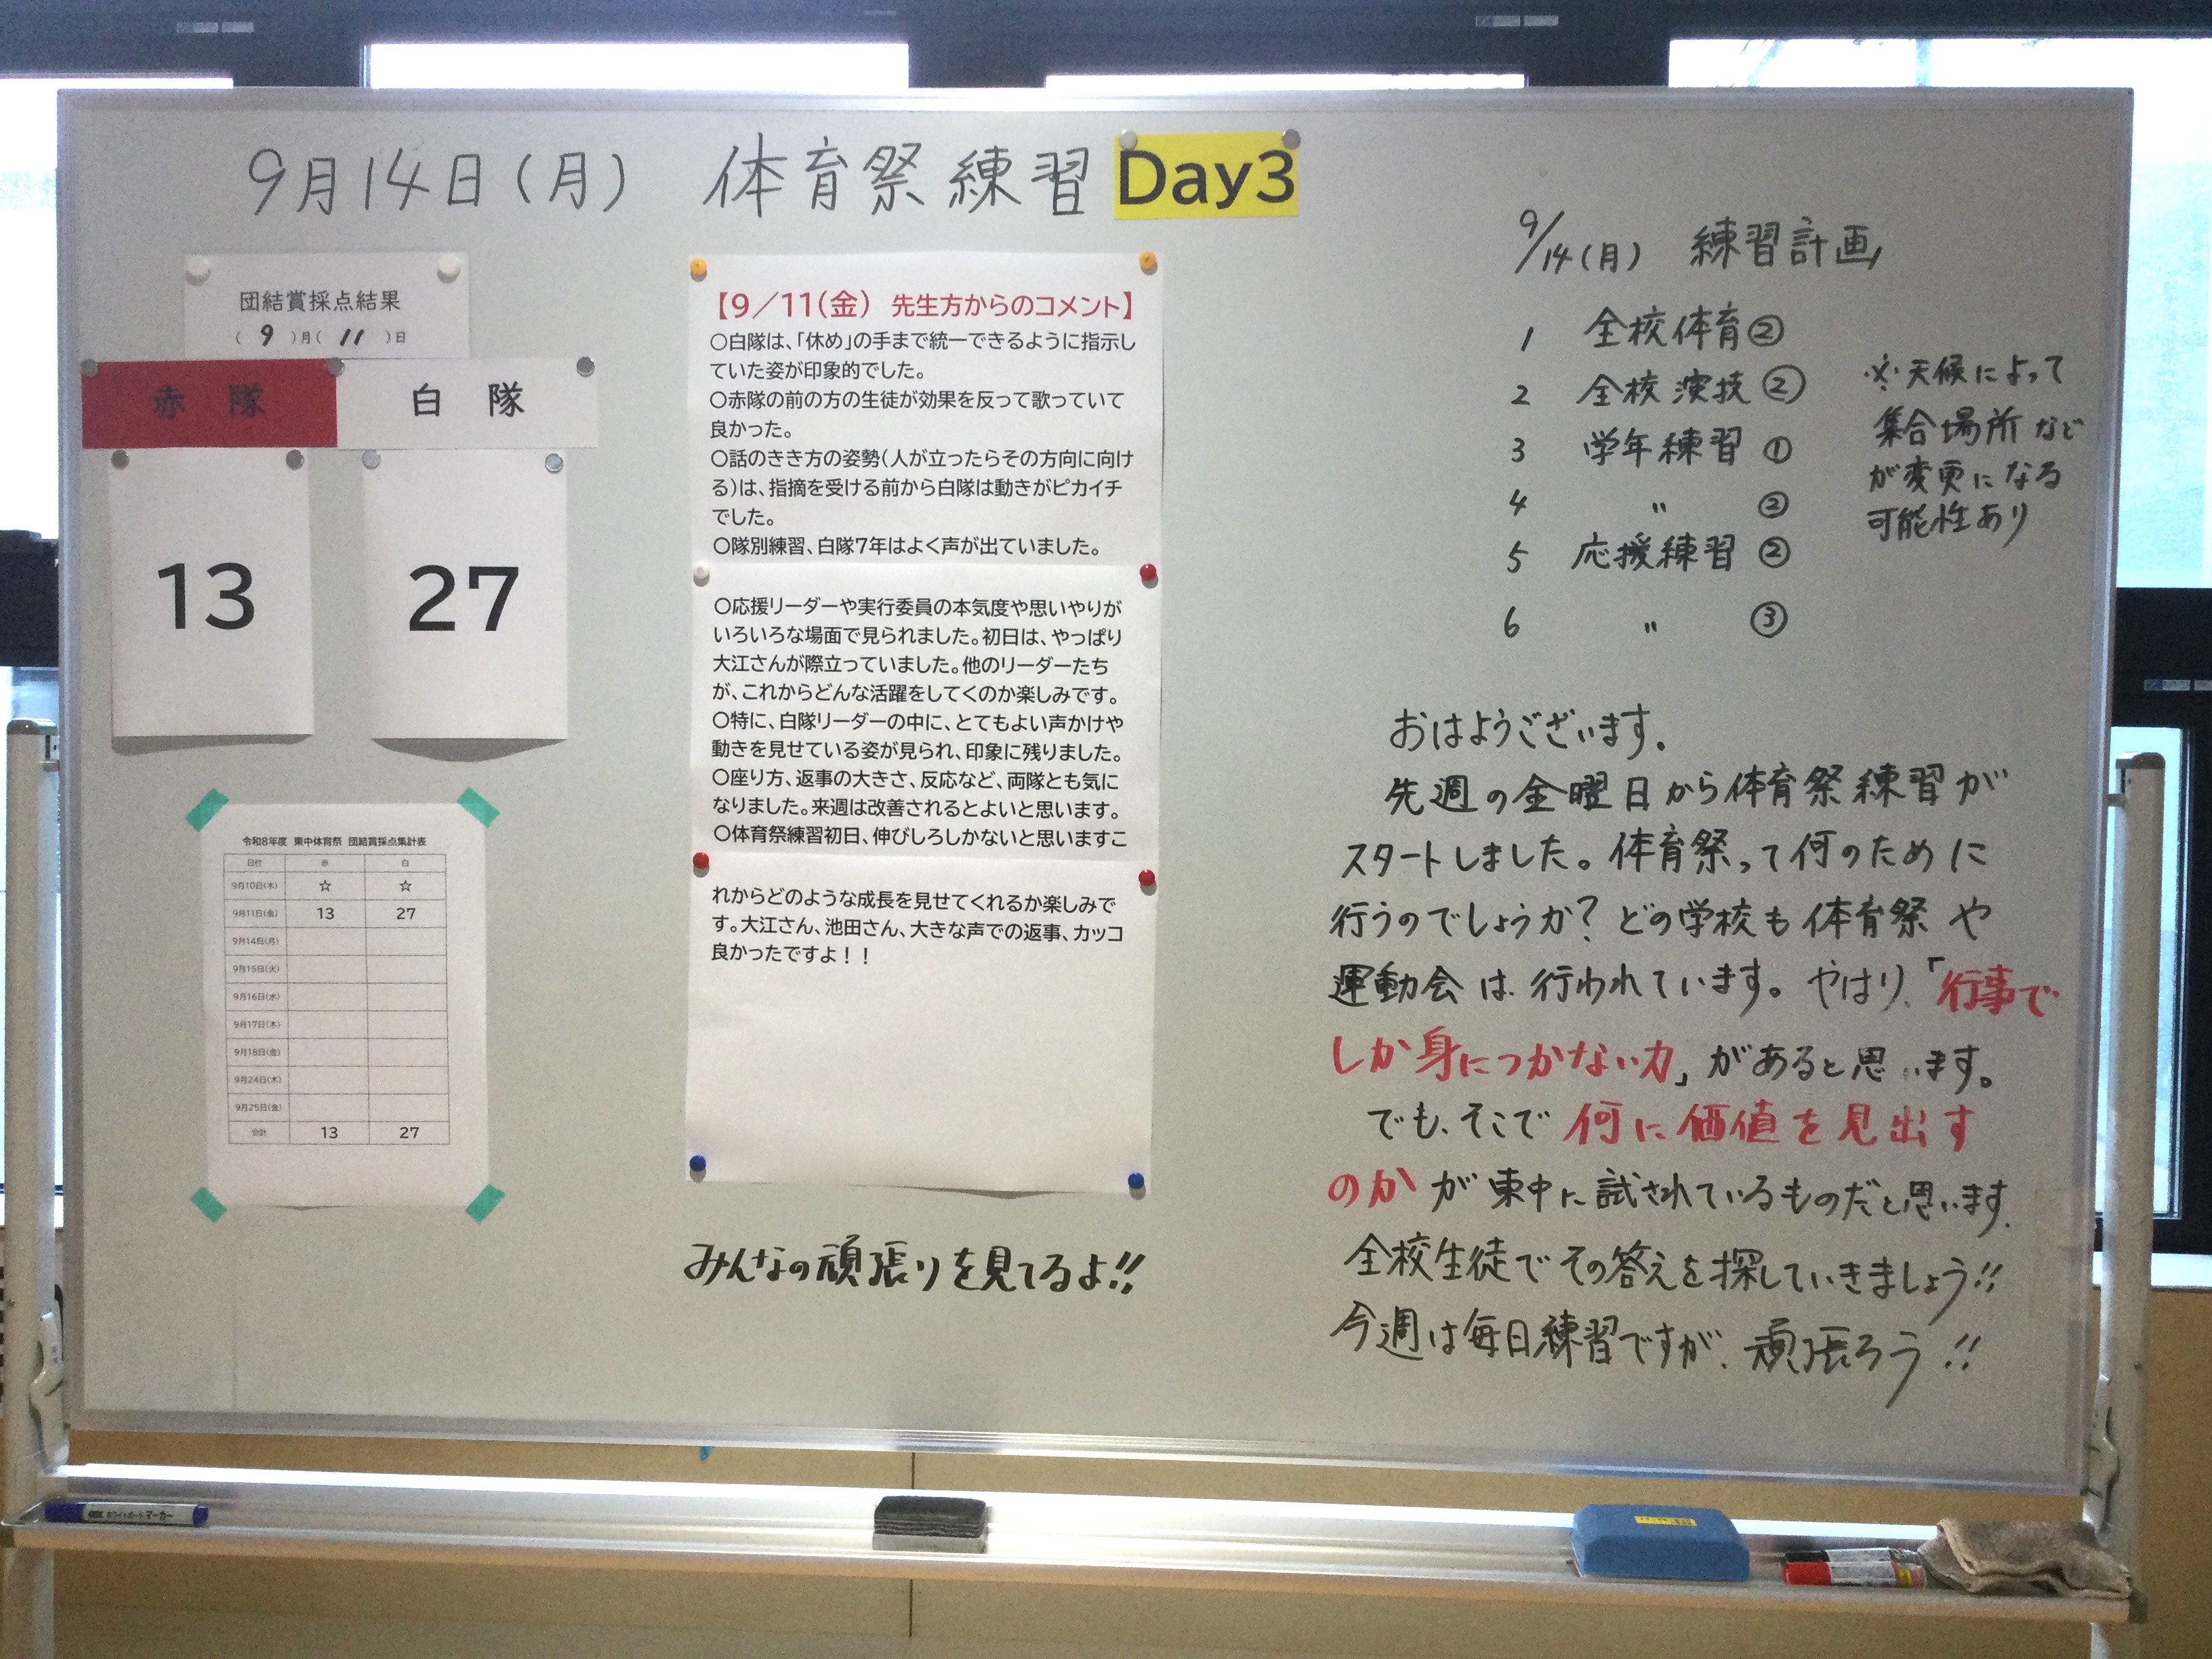 9月14日(月) 体育祭練習 Day3
団結賞採点結果
( 9 )月( 11 )日
赤 隊
白 隊
13
27
令和8年度 東中体育祭 団結賞採点集計表
日付 赤 白
9月10日(木) ☆ ☆
9月11日(金) 13 27
9月14日(月)
9月15日(火)
9月16日(水)
9月17日(木)
9月18日(金)
9月24日(木)
9月25日(金)
合計 13 27
【9/11(金) 先生方からのコメント】
○白隊は、「休め」の手まで統一できるように指示し
ていた姿が印象的でした。
○赤隊の前の方の生徒が効果を反って歌っていて
良かった。
○話のきき方の姿勢(人が立ったらその方向に向け
る)は、指摘を受ける前から白隊は動きがピカイチ
でした。
○隊別練習、白隊7年はよく声が出ていました。
○応援リーダーや実行委員の本気度や思いやりが
いろいろな場面で見られました。初日は、やっぱり
大江さんが際立っていました。他のリーダーたち
が、これからどんな活躍をしてくのか楽しみです。
○特に、白隊リーダーの中に、とてもよい声かけや
動きを見せている姿が見られ、印象に残りました。
○座り方、返事の大きさ、反応など、両隊とも気に
なりました。来週は改善されるとよいと思います。
○体育祭練習初日、伸びしろしかないと思いますこ
れからどのような成長を見せてくれるか楽しみで
す。大江さん、池田さん、大きな声での返事、カッコ
良かったですよ!!
みんなの頑張りを見てるよ!!
9/14(月) 練習計画
1 全校体育②
2 全校演技②
3 学年練習①
4 〃 ②
5 応援練習②
6 〃 ③
※天候によって
集合場所など
が変更になる
可能性あり
おはようございます。
先週の金曜日から体育祭練習が
スタートしました。体育祭って何のために
行うのでしょうか?どの学校も体育祭や
運動会は行われています。やはり、「行事で
しか身につかない力」があると思います。
でも、そこで何に価値を見出す
のかが東中に試されているものだと思います。
全校生徒でその答えを探していきましょう!!
今週は毎日練習ですが、頑張ろう!!
ホワイトボードマーカー